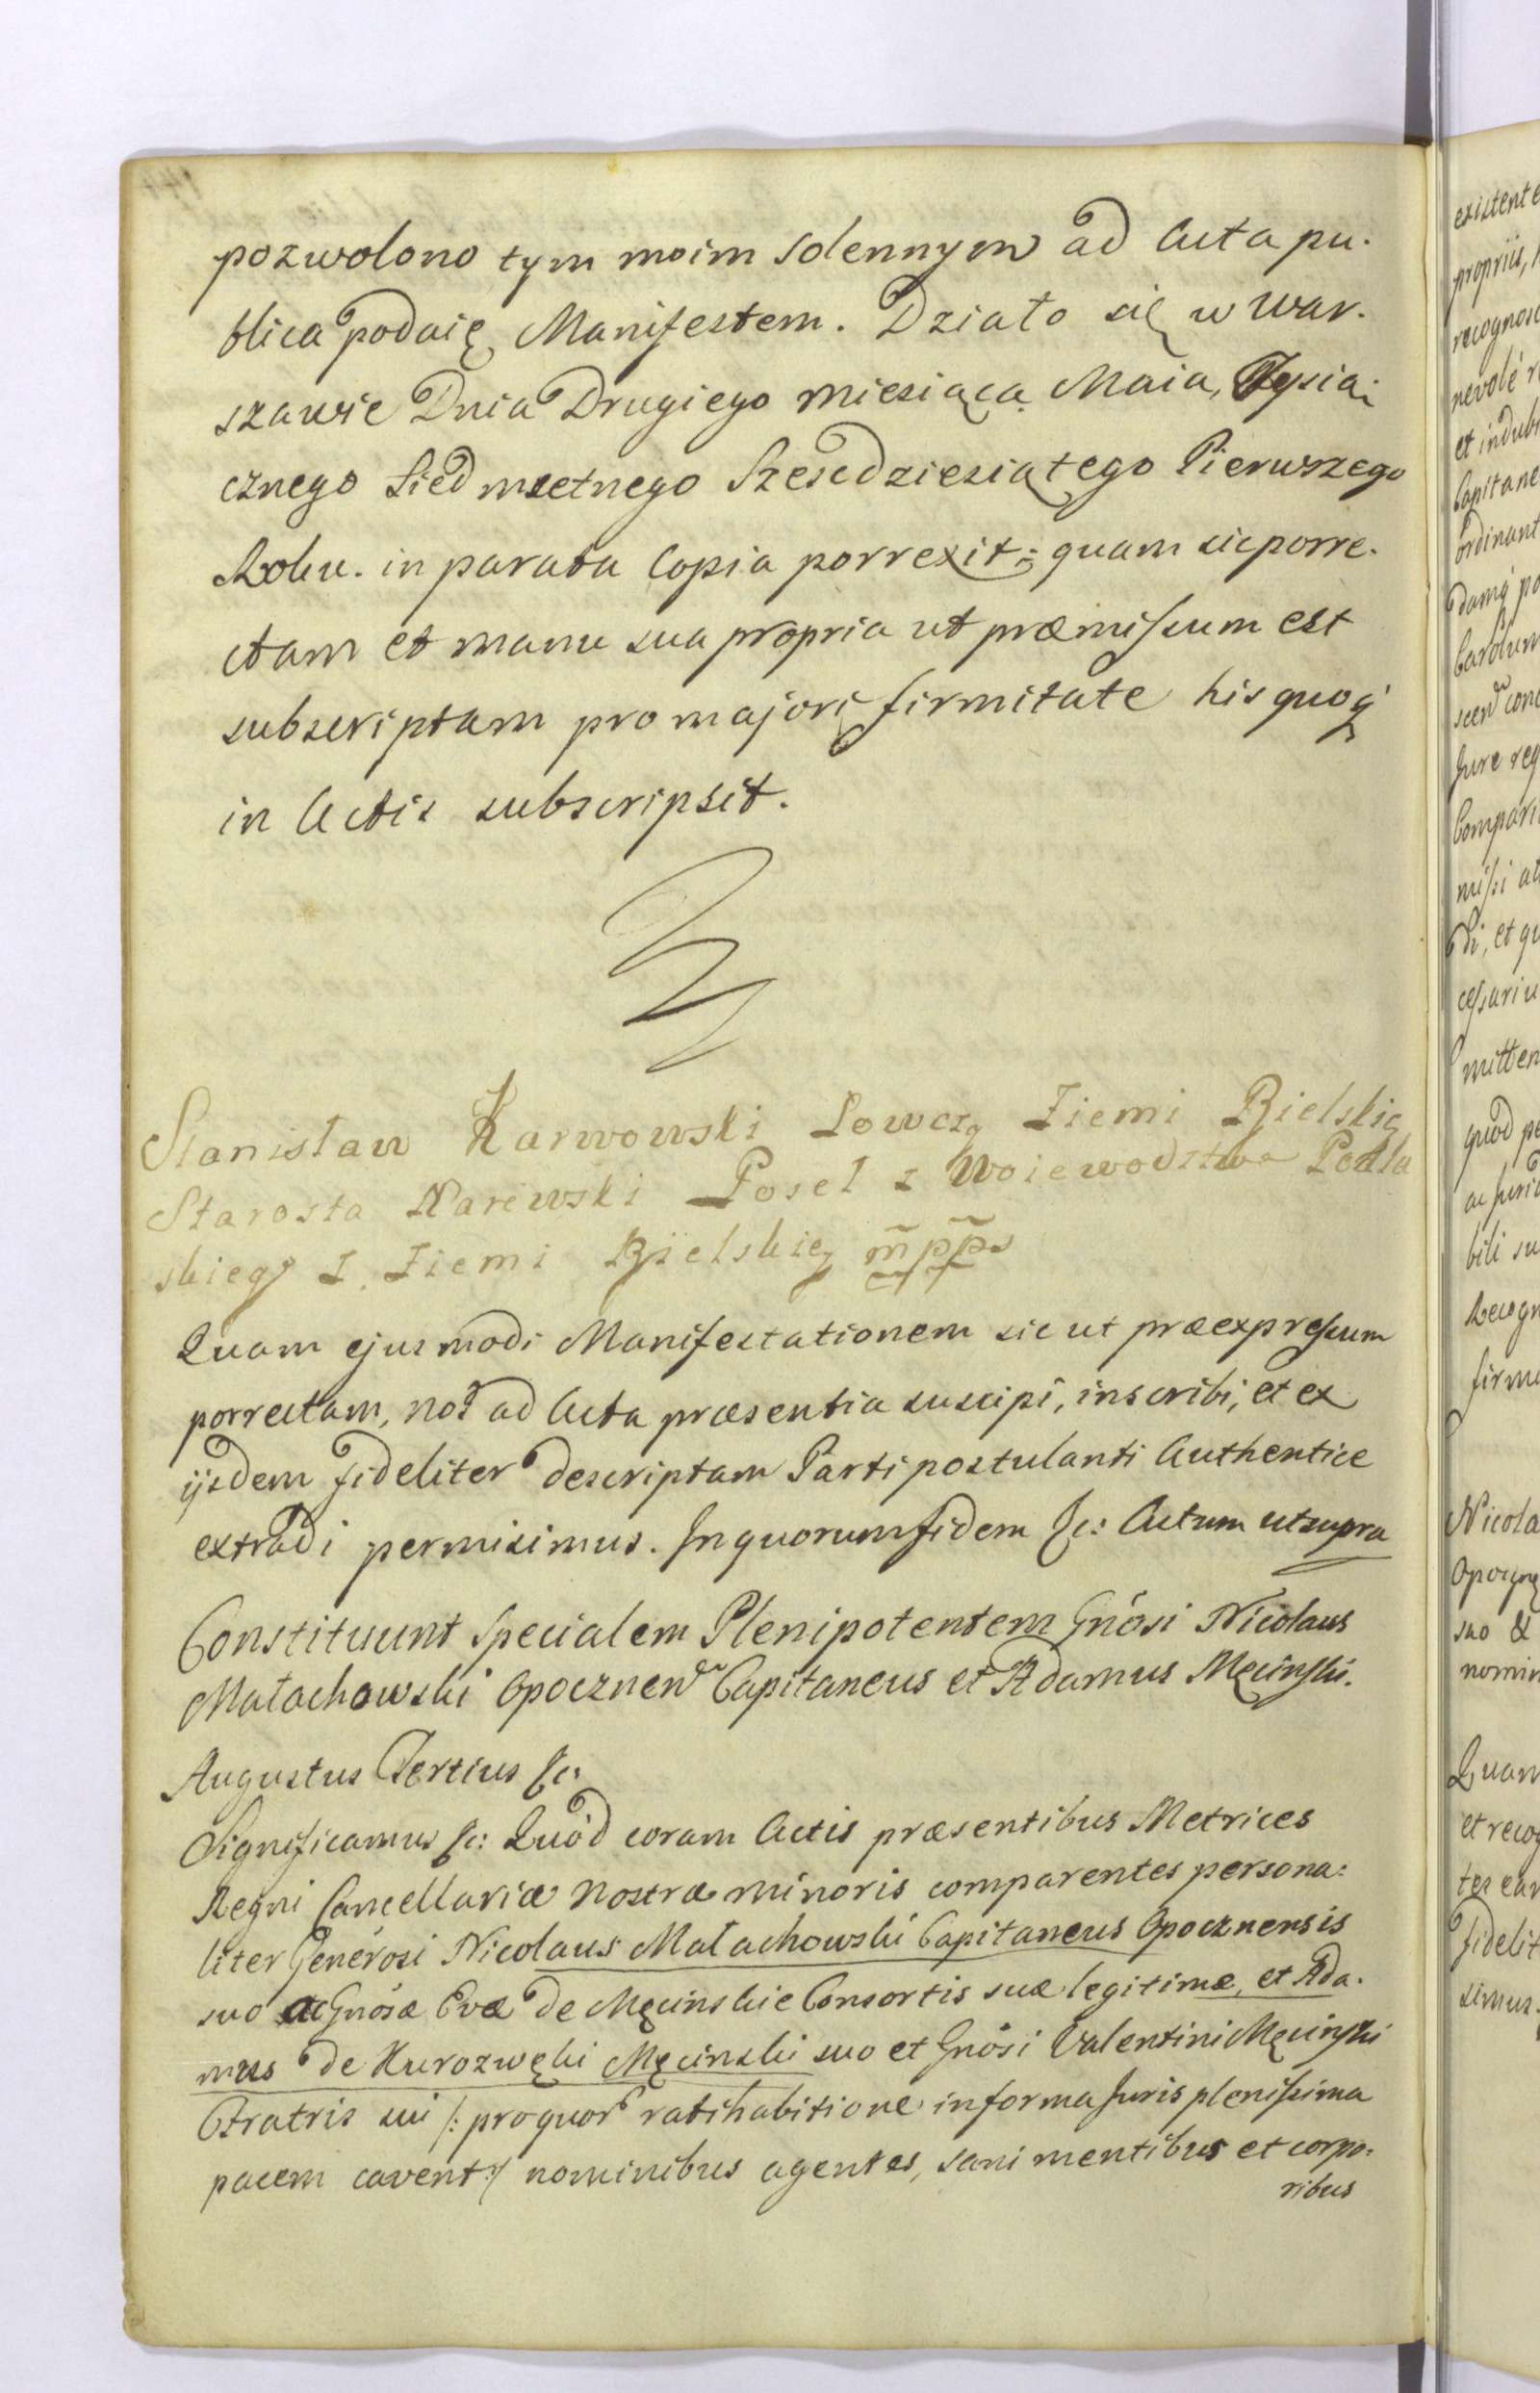 pozwolono tym moim solennym ad Acta pu-
blica podaię Manifestem. Działo się w War-
szawie Dnia Drugiego Miesiąca Maia, Tysią-
cznego Siedmsetnego Szescdziesiątego Pierwszego
Roku. in parata Copia porrexit; quam sic porre-
ctam et manu sua propria ut præmissum est
subscriptam pro majori firmitate his quoq
in Actis subscripsit.
Stanisław Karwowski Łowczy Ziemi Bielskiey
Starosta Narewski Poseł z Woiewodztwa Podla
skiego Z Ziemi Bielskiey mpps
Quam ejusmodi Manifestationem sic ut præexpressum
porrectam, nos ad Acta præsentia suscipi, inscribi, et ex
ijsdem fideliter descriptam Parti postulanti Authentice
extradi permisimus. In quorum fidem &c: Actum ut supra
Constituunt Specialem Plenipotentem Gnosi Nicolaus
Małachowski Opocznen Capitaneus et Adamus Męcinski.
Augustus Tertius &c:
Significamus &c: Quod coram Actis præsentibus Metrices
Regni Cancellariæ Nostræ minoris comparentes persona-
liter Generosi Nicolaus Małachowski Capitaneus Opocznensis
suo ac Gnosæ Evæ de Męcinskie Consortis suæ legitimæ, et Ada-
mus de Kurozwęki Męcinski suo et Gnosi Valentini Męcinski
Fratris sui /: pro quor ratihabitione in forma Juris plenissima
pacem cavent :/ nominibus agentes, sani mentibus et corpo-
ribus
existente
propriis,
recognosc
nevolé r
et indubi
Capitane
ordinant
damq po
Carolum
Jure reg
Compari
missi
di, et qu
cessariu
mitten
quod pe
ac Juri
bili su
Recogn
firm
Nicola
suo &
nomin
Quam
et recog
fidelit
simus.